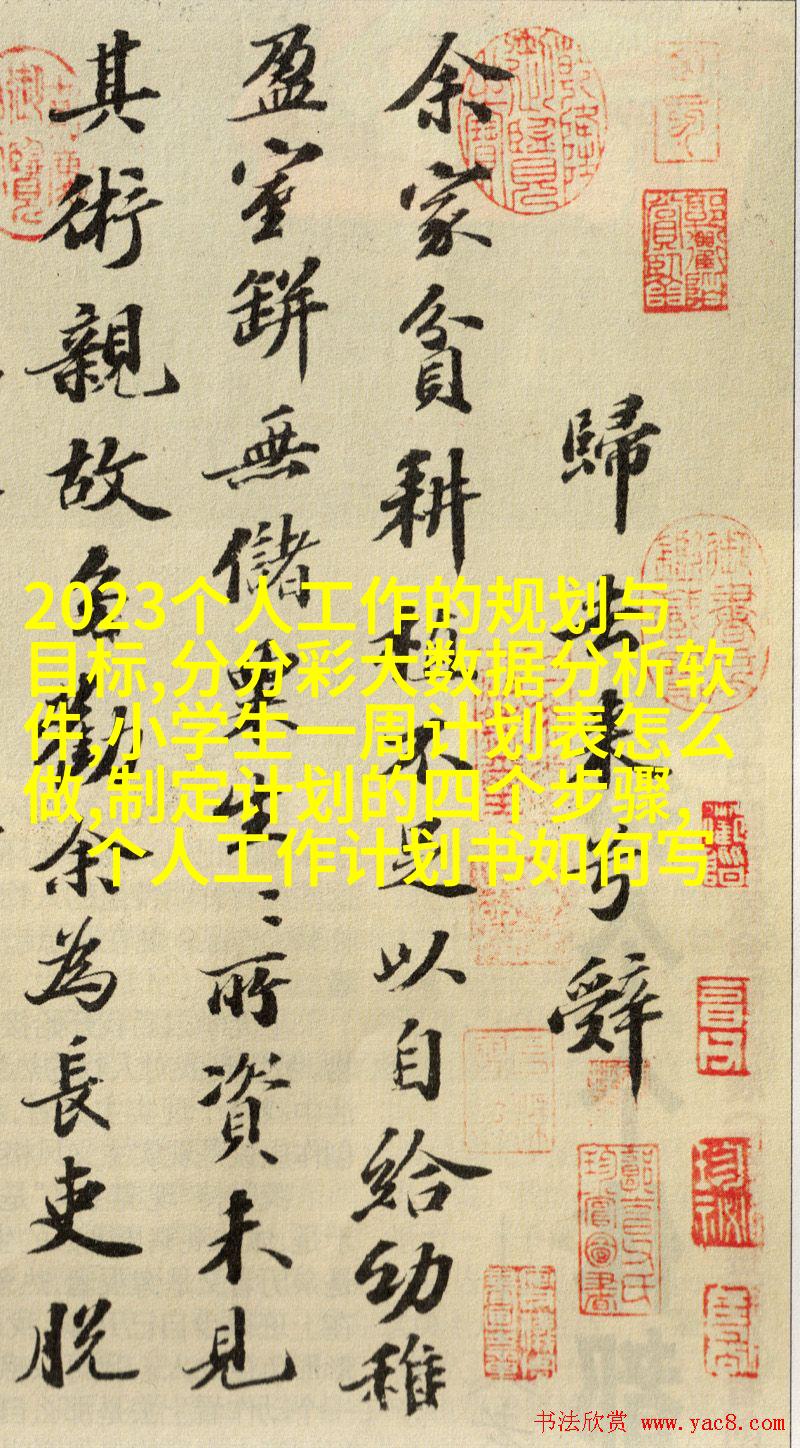 歸去來兮辭
余家貧耕植不足以自給幼稚
盈室缾無儲粟生〻所資未見
其術親故多勸余為長吏脫
2023个人工作的规划与
目标,分分彩大数据分析软
件,小学生一周计划表怎么
做,制定计划的四个步骤,
个人工作计划书如何写
书法欣赏 www.yac8.com